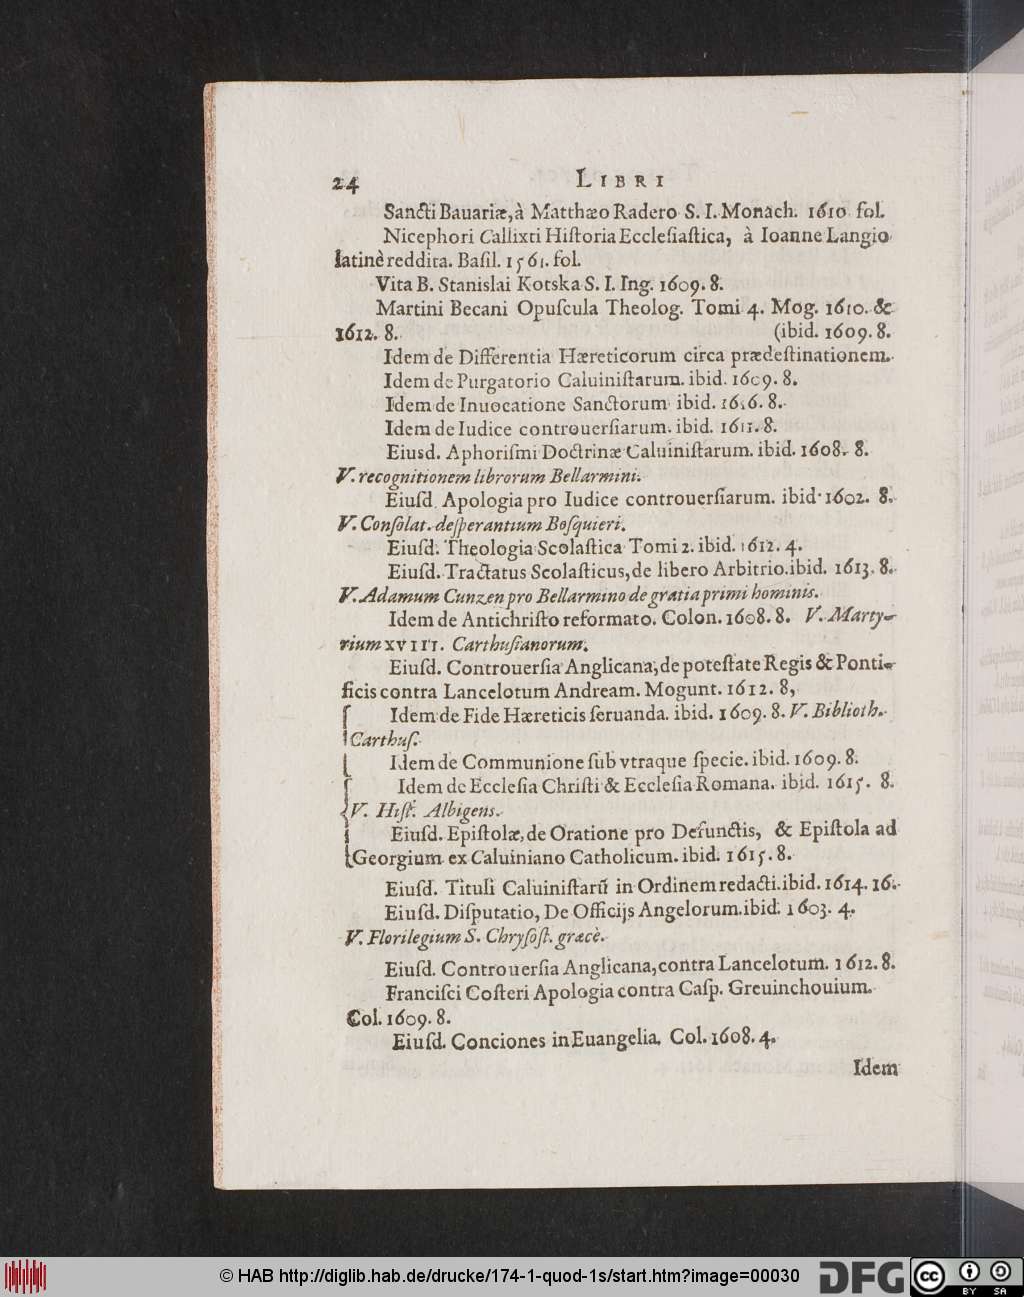 24 LIBRI
Sancti Bauariæ, à Matthæo Radero S. I. Monach. 1610 fol.
Nicephori Callixti Hiſtoria Eccleſiaſtica, à Ioanne Langio
latinè reddita. Baſil. 1561. fol.
Vita B. Stanislai Kotska S. I. Ing. 1609. 8.
Martini Becani Opuſcula Theolog. Tomi 4. Mog. 1610. &
1612. 8. (ibid. 1609. 8.
Idem de Differentia Hæreticorum circa prædeſtinationem.
Idem de Purgatorio Caluiniſtarum. ibid. 1609. 8.
Idem de Inuocatione Sanctorum ibid. 8.
Idem de Iudice controuerſiarum. ibid. 1611. 8.
Eiusd. Aphoriſmi Doctrinæ Caluiniſtarum. ibid. 1608. 8.
V. recognitionem librorum Bellarmini.
Eiuſd. Apologia pro Iudice controuerſiarum. ibid. 1602. 8.
V. Conſolat. deſperantium Boſquieri.
Eiuſd. Theologia Scolaſtica Tomi 2. ibid. 1612. 4.
Eiuſd. Tractatus Scolaſticus, de libero Arbitrio. ibid. 1613. 8.
V. Adamum Cunzen pro Bellarmino de gratia primi hominis.
Idem de Antichriſto reformato. Colon. 1608. 8. V. Marty-
rium XVIII. Carthuſianorum.
Eiuſd. Controuerſia Anglicana, de poteſtate Regis & Ponti-
ficis contra Lancelotum Andream. Mogunt. 1612. 8,
Idem de Fide Hæreticis ſeruanda. ibid. 1609. 8. V. Biblioth.
Carthuſ.
Idem de Communione ſub vtraque ſpecie. ibid. 1609. 8.
Idem de Eccleſia Chriſti & Eccleſia Romana. ibid. 1615. 8.
V. Hiſt. Albigens.
Eiuſd. Epiſtolæ, de Oratione pro Defunctis, & Epiſtola ad
Georgium ex Caluiniano Catholicum. ibid. 1615. 8.
Eiuſd. Tituli Caluiniſtarū in Ordinem redacti. ibid. 1614. 16.
Eiuſd. Diſputatio, De Officijs Angelorum. ibid. 1603. 4.
V. Florilegium S. Chryſoſt. græcè.
Eiuſd. Controuerſia Anglicana, contra Lancelotum. 1612. 8.
Franciſci Coſteri Apologia contra Caſp. Greuinchouium.
Col. 1609. 8.
Eiuſd. Conciones in Euangelia. Col. 1608. 4.
Idem
© HAB http://diglib.hab.de/drucke/174-1-quod-1s/start.htm?image=00030
DFG
cc
BY SA